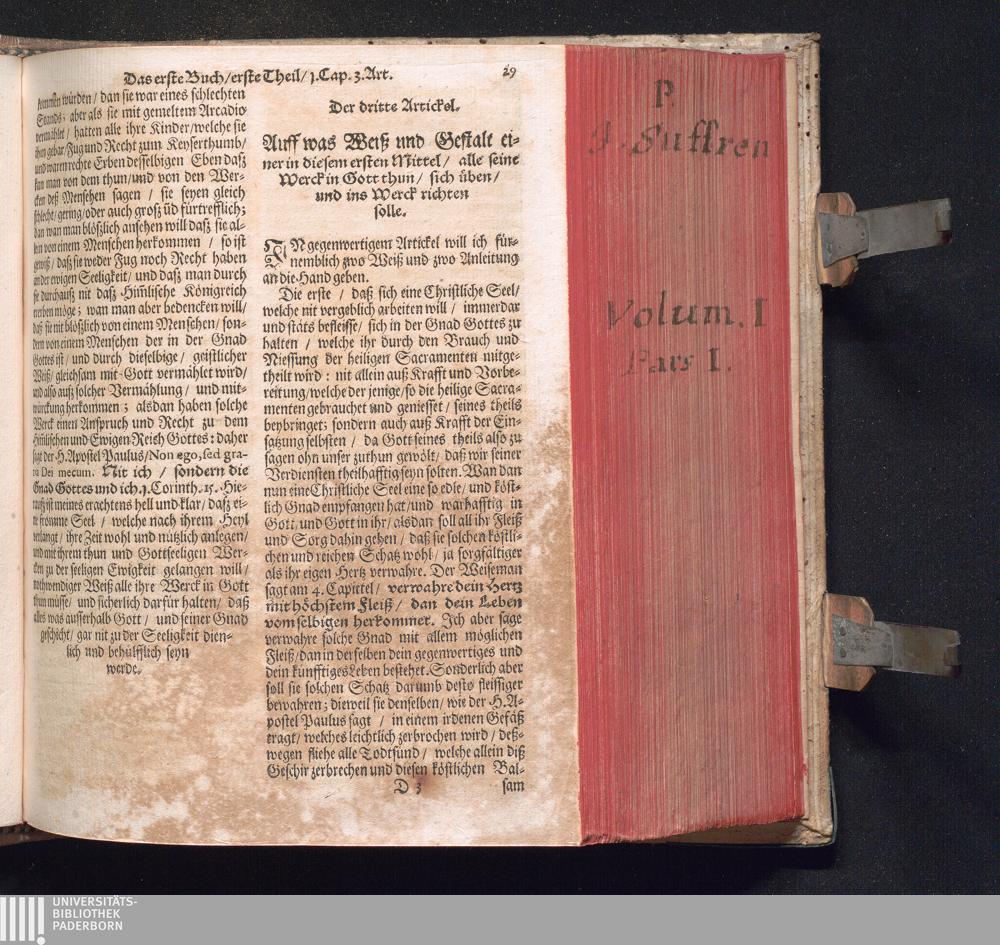 Das erste Buch/erste Theil/1.Cap.3.Art.
29
kommen würden/ dan sie war eines schlechten
Stands; aber als sie mit gemeltem Arcadio
vermählet/ hatten alle ihre Kinder/welche sie
ihm gebar/Fug und Recht zum Keyserthumb/
und waren rechte Erben desselbigen Eben daß
kan man von dem thun/und von den Wer-
cken deß Menschen sagen/ sie seyen gleich
schlecht/gering/oder auch groß uñ fürtrefflich;
dan wan man blößlich ansehen will daß sie al-
lein von einem Menschen herkommen/ so ist
gewiß/daß sie weder Fug noch Recht haben
an der ewigen Seeligkeit/ und daß man durch
sie durchauß nit daß Him̃lische Königreich
erwerben möge; wan man aber bedencken will/
daß sie nit blößlich von einem Menschen/ son-
dern von einem Menschen der in der Gnad
Gottes ist/ und durch dieselbige/ geistlicher
Weiß/gleichsam mit Gott vermählet wird/
und also auß solcher Vermählung/ und mit-
würckung herkommen; alsdan haben solche
Werck einen Anspruch und Recht zu dem
Him̃lischen und Ewigen Reich Gottes: daher
sagt der H.Apostel Paulus/Non ego,sed gra-
tia Dei mecum. Nit ich/ sondern die
Gnad Gottes und ich.1.Corinth.15. Hie-
rauß ist meines erachtens hell und klar/ daß ei-
ne fromme Seel/ welche nach ihrem Heyl
verlangt/ ihre Zeit wohl und nützlich anlegen/
und mit ihrem thun und Gottseeligen Wer-
cken zu der seeligen Ewigkeit gelangen will/
nothwendiger Weiß alle ihre Werck in Gott
thun müsse/ und sicherlich darfür halten/ daß
alles was ausserhalb Gott/ und seiner Gnad
geschicht/ gar nit zu der Seeligkeit dien-
lich und behülfflich seyn
werde.
Der dritte Artickel.
Auff was Weiß und Gestalt ei-
ner in diesem ersten Mittel/ alle seine
Werck in Gott thun/ sich üben/
und ins Werck richten
solle.
IN gegenwertigem Artickel will ich für-
nemblich zwo Weiß und zwo Anleitung
an die Hand geben.
Die erste/ daß sich eine Christliche Seel/
welche nit vergeblich arbeiten will/ immerdar
und stäts befleisse/ sich in der Gnad Gottes zu
halten/ welche ihr durch den Brauch und
Niessung der heiligen Sacramenten mitge-
theilt wird: nit allein auß Krafft und Vorbe-
reitung/welche der jenige/so die heilige Sacra-
menten gebrauchet und geniesset/ seines theils
beybringet; sondern auch auß Krafft der Ein-
satzung selbsten/ da Gott seines theils also zu
sagen ohn unser zuthun gewölt/ daß wir seiner
Verdiensten theilhafftig seyn solten. Wan dan
nun eine Christliche Seel eine so edle/ und köst-
lich Gnad empfangen hat/und warhafftig in
Gott/ und Gott in ihr/ alsdan soll all ihr Fleiß
und Sorg dahin gehen/ daß sie solchen köstli-
chen und reichen Schatz wohl/ ja sorgfältiger
als ihr eigen Hertz verwahre. Der Weiseman
sagt am 4. Capittel/ verwahre dein Hertz
mit höchstem Fleiß/ dan dein Leben
vom selbigen herkommet. Ich aber sage
verwahre solche Gnad mit allem möglichen
Fleiß/dan in derselben dein gegenwertiges und
dein künfftiges Leben bestehet. Sonderlich aber
soll sie solchen Schatz darumb desto fleissiger
bewahren; dieweil sie denselben/ wie der H.A-
postel Paulus sagt/ in einem irdenen Gefäß
tragt/ welches leichtlich zerbrochen wird/ deß-
wegen fliehe alle Todtsünd/ welche allein diß
Geschir zerbrechen und diesen köstlichen Bal-
D 3
sam
P.
J. Suffren
Volum. I
Pars I.
UNIVERSITÄTS-
BIBLIOTHEK
PADERBORN